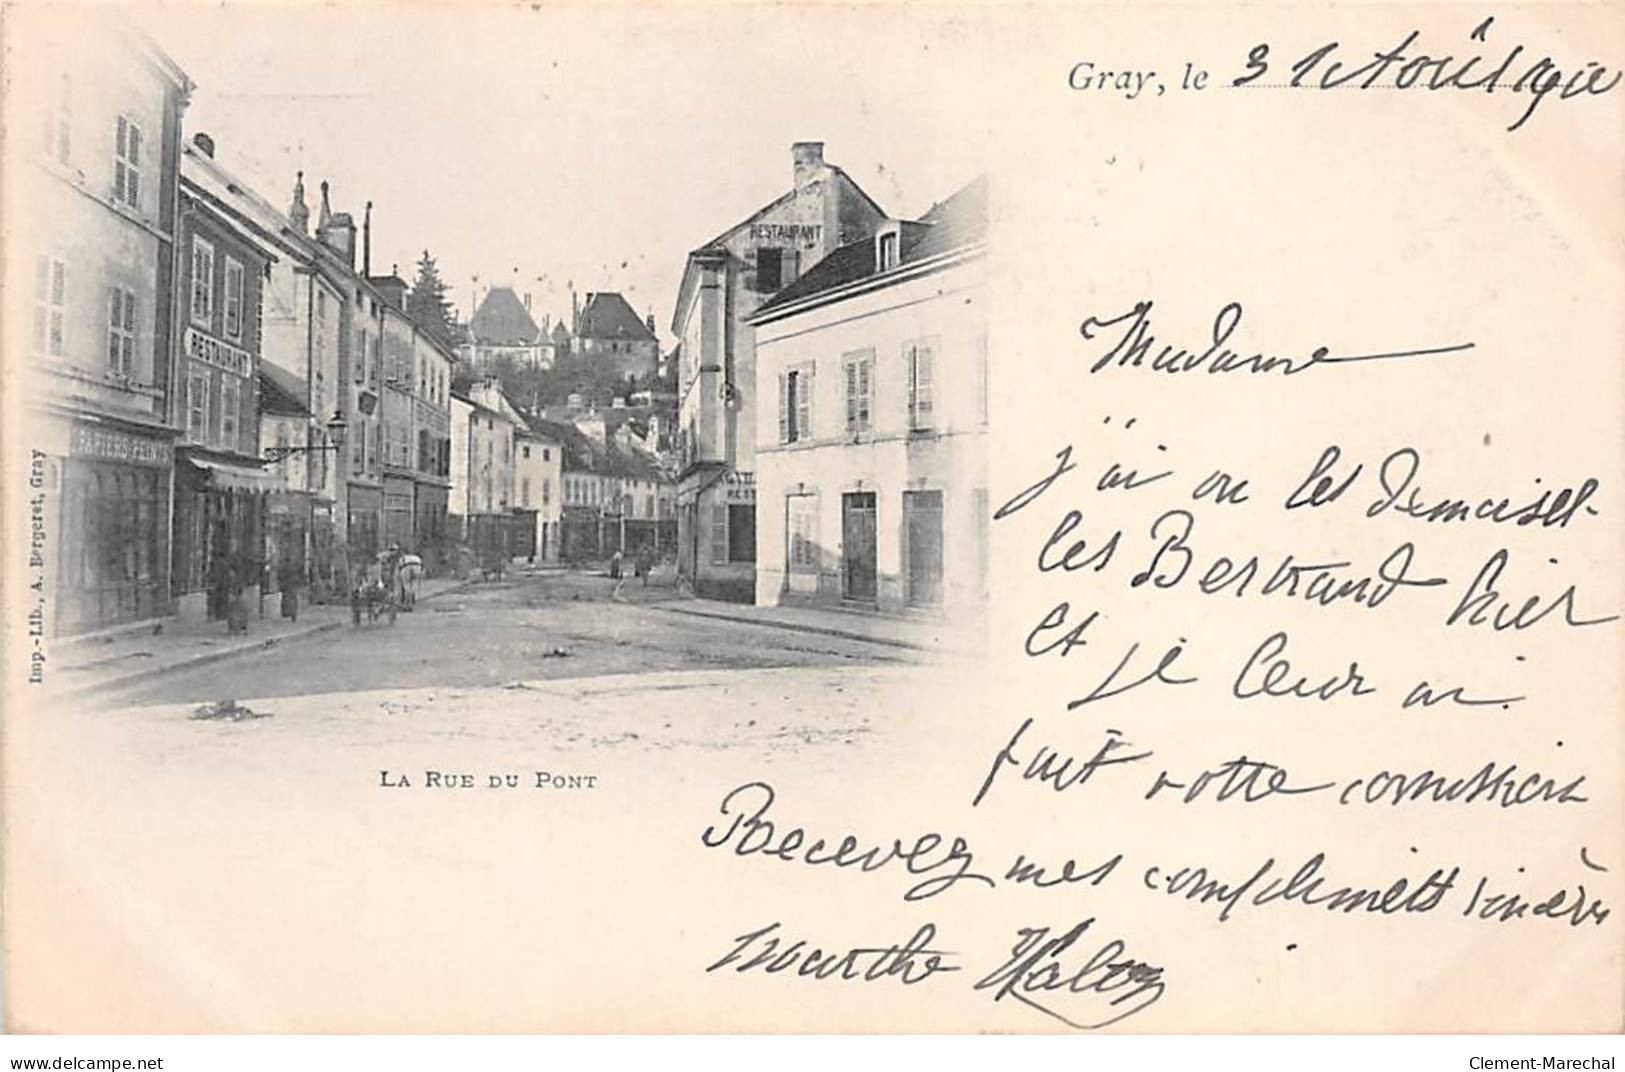 Gray, le 31 Août
RESTAURANT
RESTAURANT
PAPIERS-PEINTS
REST
Imp.-Lib., A. Bergeret, Gray
LA RUE DU PONT
Madame
j'ai vu les demoisel-
les Bertrand hier
et je leur ai
fait votre commission
Recevez mes compliments sincères
Marthe
delcampe.net
Clement-Marechal